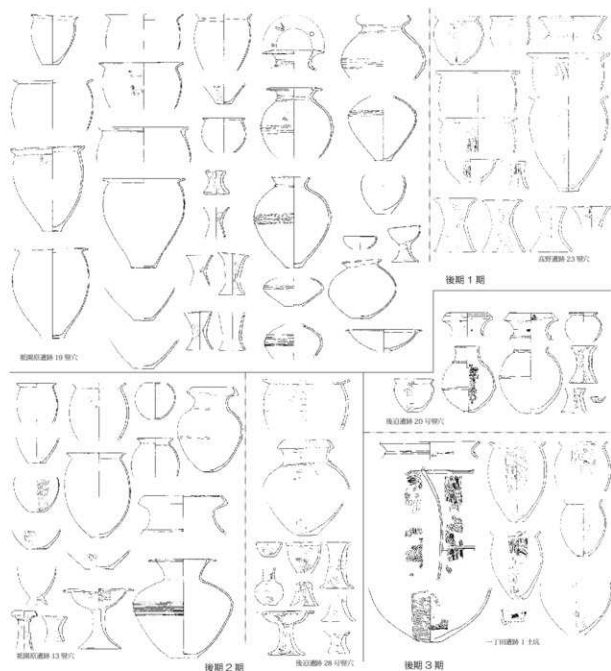 祇園原遺跡 19 竪穴
高野遺跡 23 竪穴
後期 1 期
後迫遺跡 20 号竪穴
祇園原遺跡 13 竪穴
後期 2 期
後迫遺跡 28 号竪穴
一丁田遺跡 1 土坑
後期 3 期